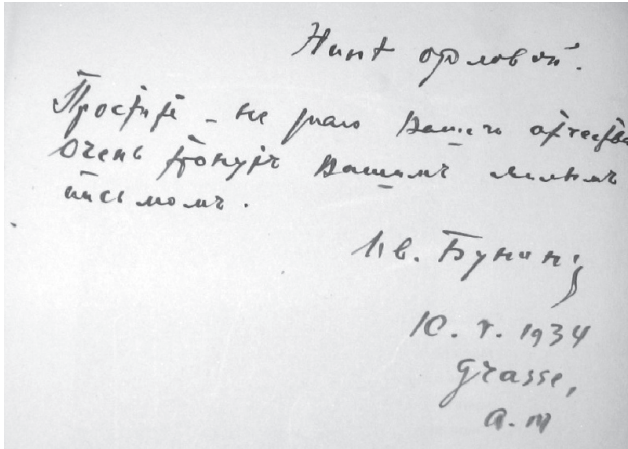 Нинѣ Орловой.
Простите – не знаю Вашего отчества
Очень тронутъ Вашимъ милымъ
письмомъ.
Ив. Бунинъ
10. V. 1934
Grasse,
A. M